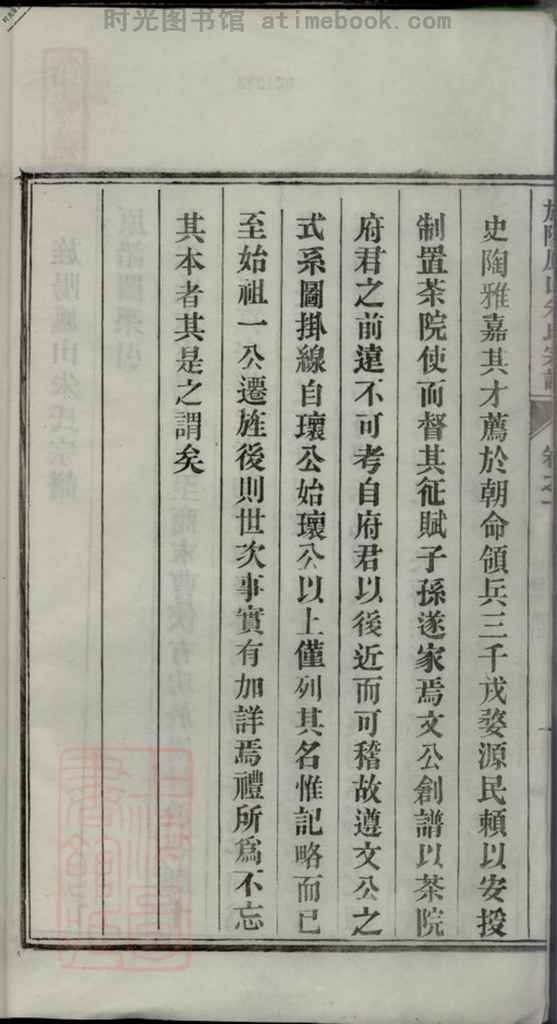 时光图书馆 atimebook.com
史陶雅嘉其才薦於朝命領兵三千戎婺源民賴以安授
制置茶院使而督其征賦子孫遂家焉文公創譜以茶院
府君之前遠不可考自府君以後近而可稽故遵文公之
式系圖掛線自瓌公始瓌公以上僅列其名惟記略而已
至始祖一公遷旌後則世次事實有加詳焉禮所爲不忘
其本者其是之謂矣